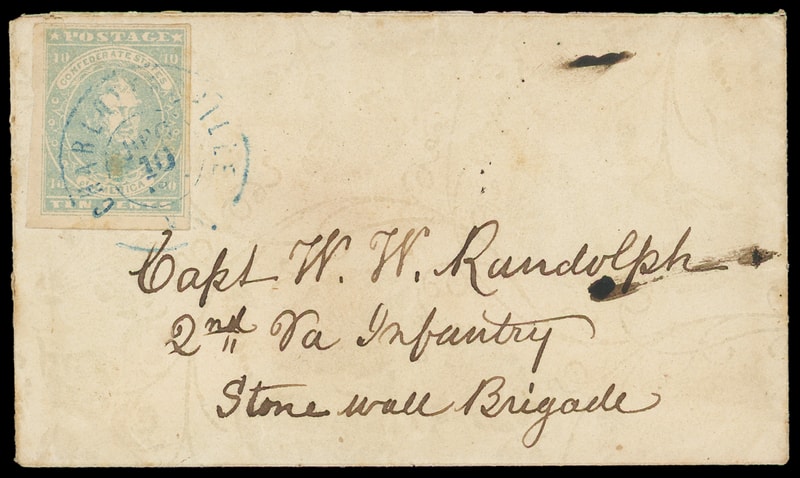 ★ POSTAGE ★
10 10
CONFEDERATE STATES
10 10
TEN CENTS
10
Capt W. W. Randolph
2nd Va Infantry
Stone wall Brigade